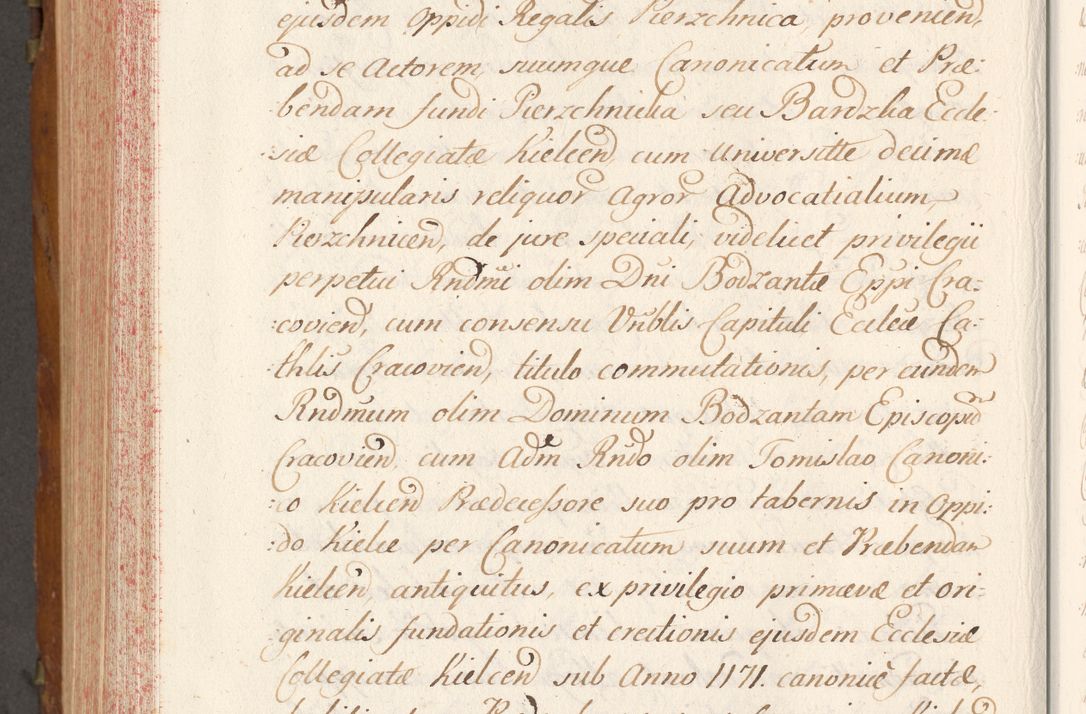 ejusdem Oppidi Regalis Pierzchnica, provenien,
ad se Actorem, suumque Canonicatum et Præ:
bendam fundi Pierzchnicka seu Bardzka Eccle:
:siæ Collegiatæ Kielcen, cum Universitte decimæ
manipularis reliquor Agror Advocatialium,
Pierzchnicen, de jure speciali, videlicet privilegii
perpetui Rndmi olim Dni Bodzantæ Eppi Cra:
:covien, cum consensu Vnblis Capituli Eccleæ Ca:
thlis Cracovien, titulo commutationis, per eundem
Rndmum olim Dominum Bodzantam Episcopum
Cracovien, cum Adm Rndo olim Tomislao Canoni:
:co Kielcen Prædecessore suo pro tabernis in Oppi:
:do Kielce per Canonicatum suum et Præbendam
Kielcen, antiquitus, ex privilegio primævæ et ori:
ginalis fundationis et erectionis ejusdem Ecclesiæ
Collegiatæ Kielcen sub Anno 1171. canonicè factæ,